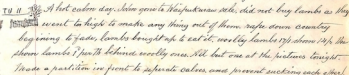 TH 11 A hot calm day. John gone to Waipukurau sale, did not buy lambs as they
went to high to make any thing out of them, rape down country
beginning to fade, lambs bought up to eat it, woolly lambs 17/1 shorn 14/4 the
shorn lambs 7 per lb behind woolly ones. Nil but one at the pictures tonight.
Made a partition in front to seperate calves, and prevent sucking each other